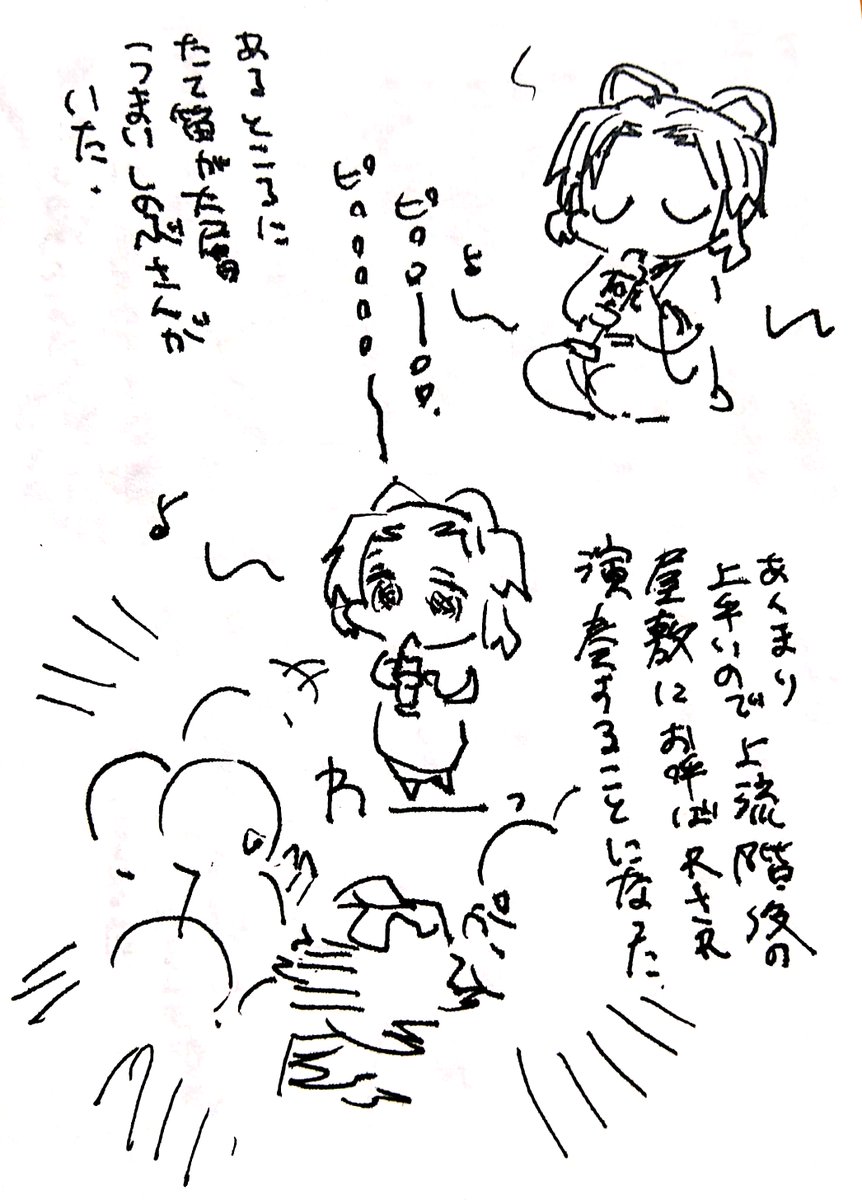 あるところに
たて笛が大層
うまいしのぶさんが
いた.
ピロローロロ.
ピロロロロロー
あんまり
上手いので上流階級の
屋敷にお呼ばれされ
演奏することになった.
わーっ